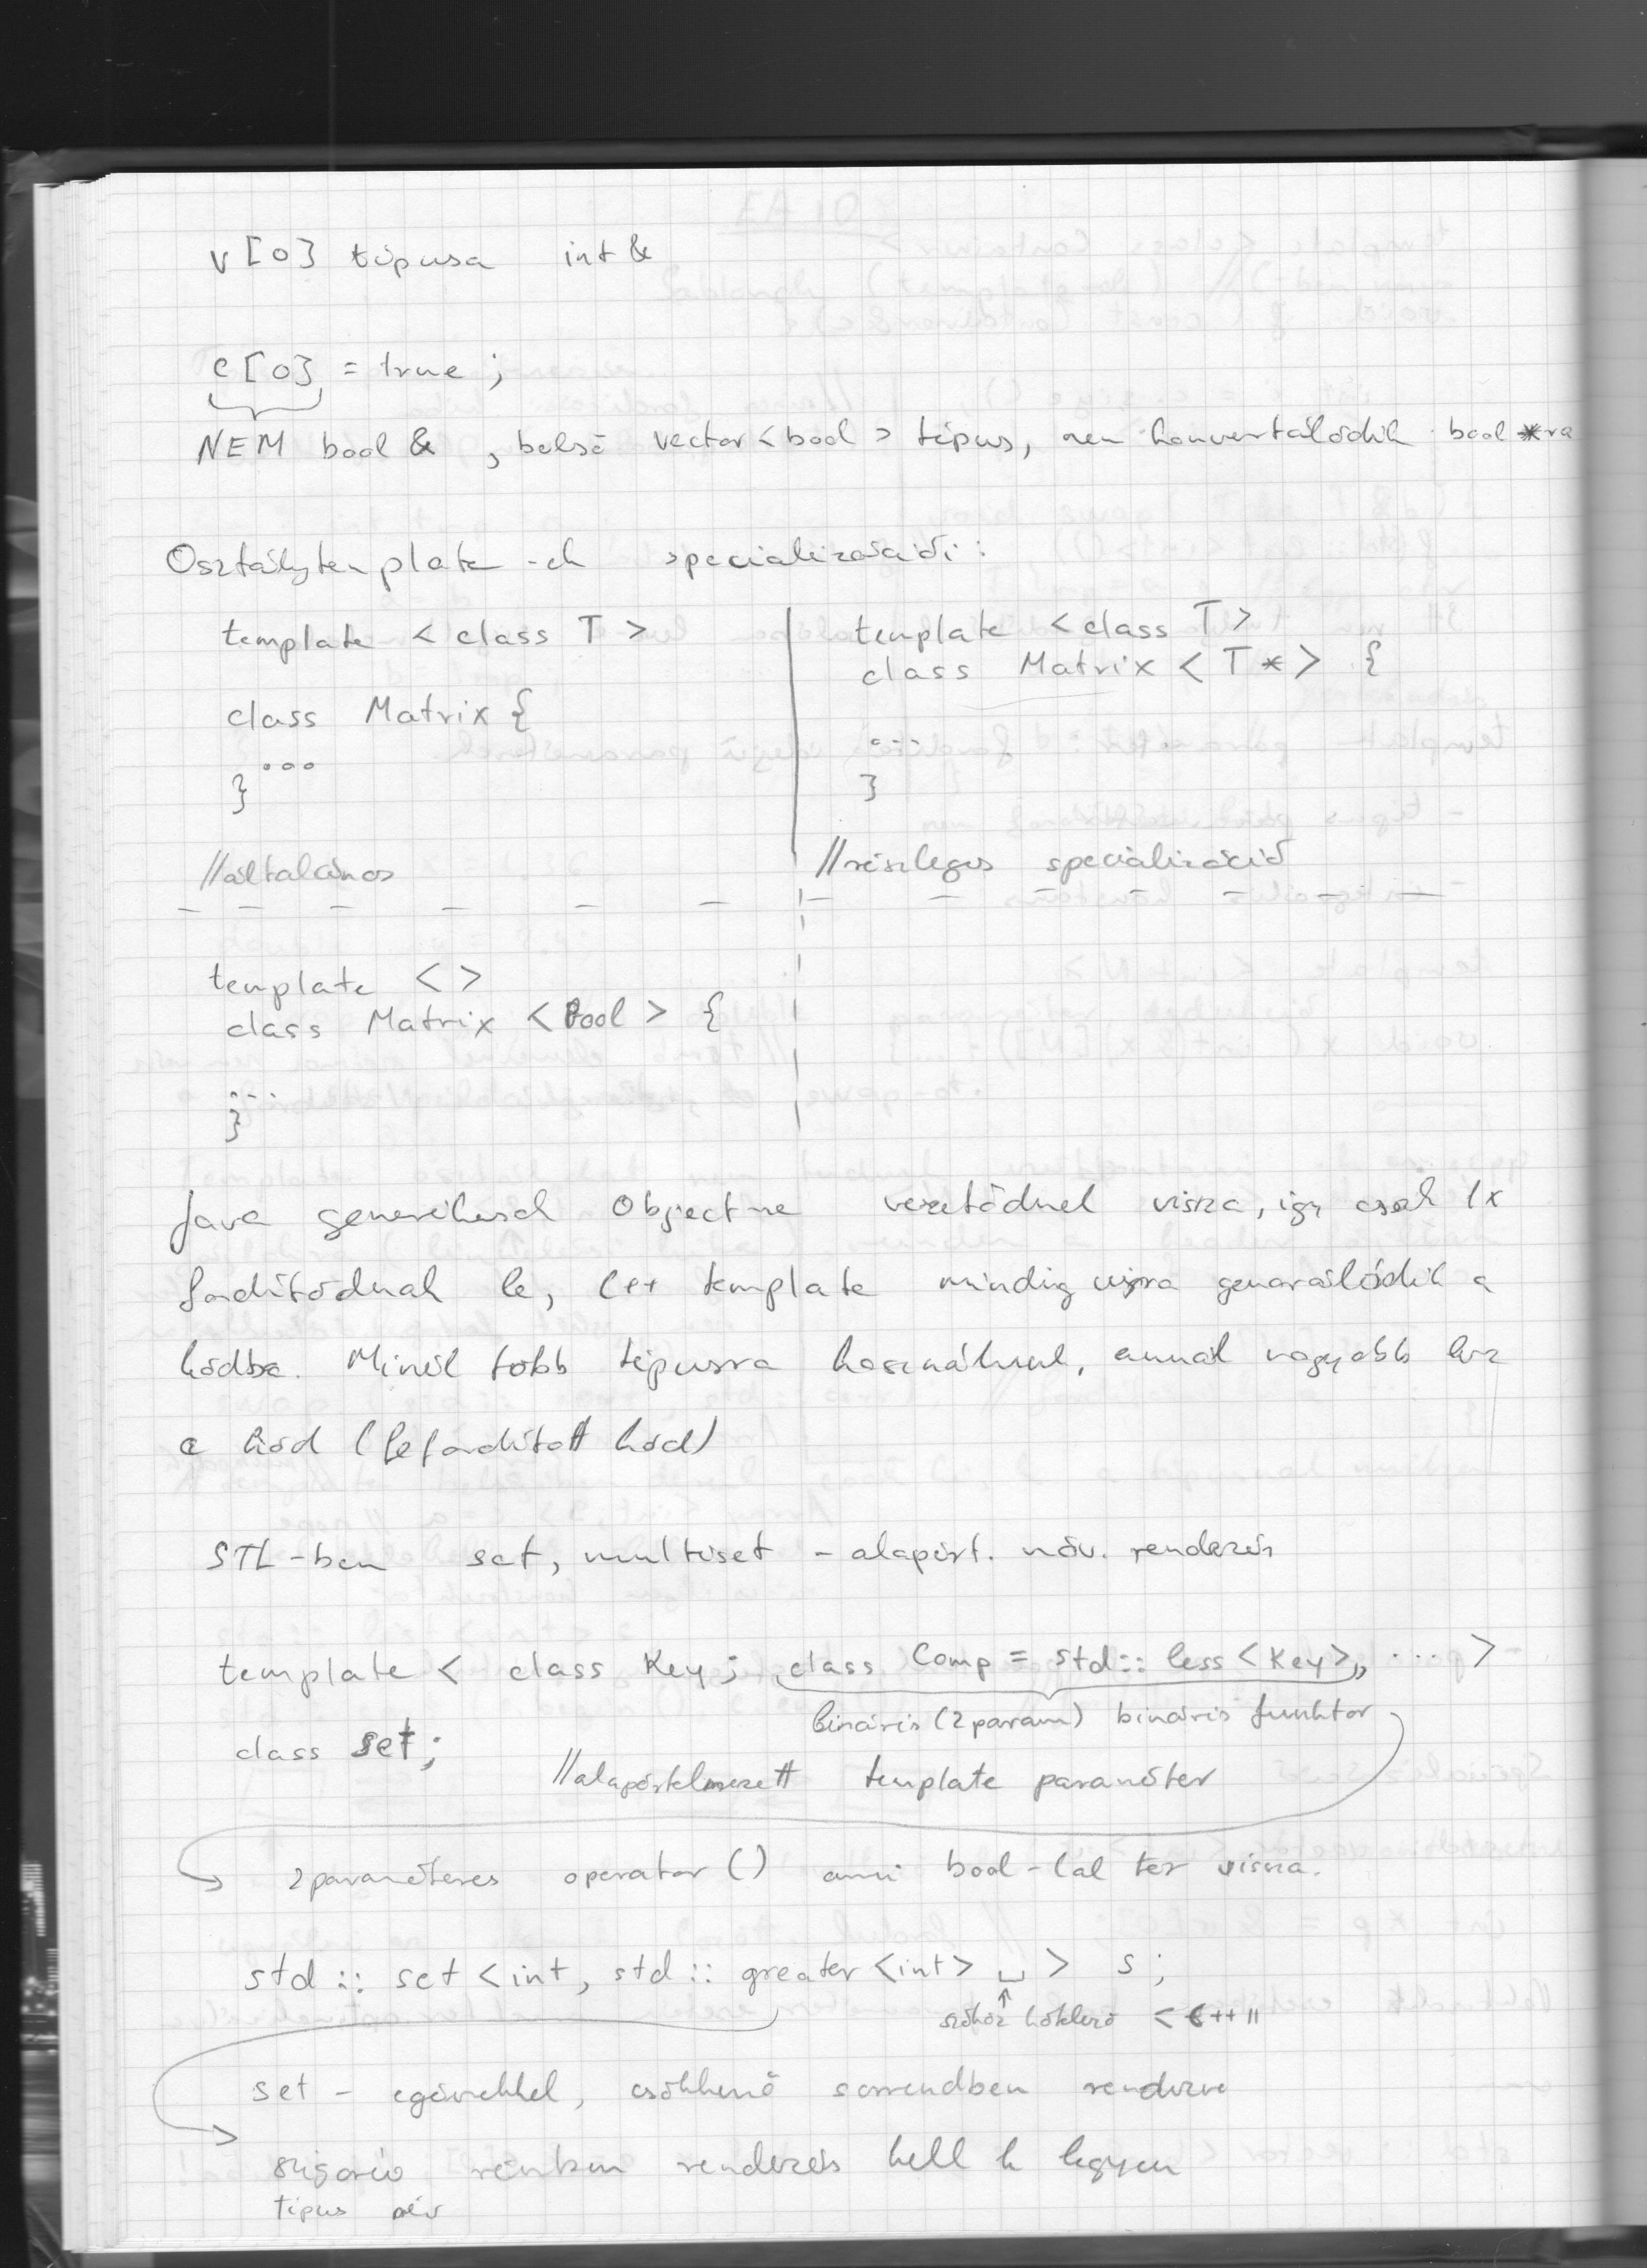 v[0] típusa int&
c[0] = true;
NEM bool &, belső vector<bool> típus, nem konvertálódik bool*ra
Osztálytemplate-ek specializációi:
template <class T>
class Matrix {
...
}
//általános
template <class T>
class Matrix <T*> {
...
}
//részleges specializáció
template <>
class Matrix <bool> {
...
}
Java generikusok Objectre vezetődnek vissza, így csak 1x
fordítódnak le, C++ template mindig újra generálódik a
kódba. Minél több típusra használunk, annál nagyobb lesz
a kód (lefordított kód)
STL-ben set, multiset - alapért. növ. rendezés
template < class Key; class Comp = std::less<Key>, ... >
bináris (2param) bináris funktor
class set;
//alapértelmezett template paraméter
2paraméteres operator () ami bool-lal tér vissza.
std::set<int, std::greater<int> ␣ > s;
szóköz kötelező < C++11
set - egészekkel, csökkenő sorrendben rendezve
szigorú részben rendezés kell h legyen
típus név